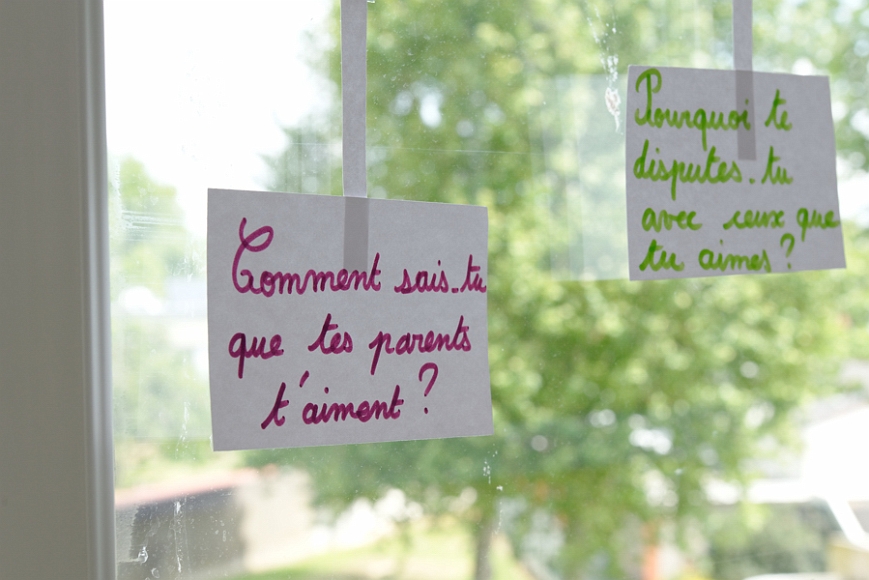 Comment sais-tu
que tes parents
t'aiment ?
Pourquoi te
disputes-tu
avec ceux que
tu aimes ?